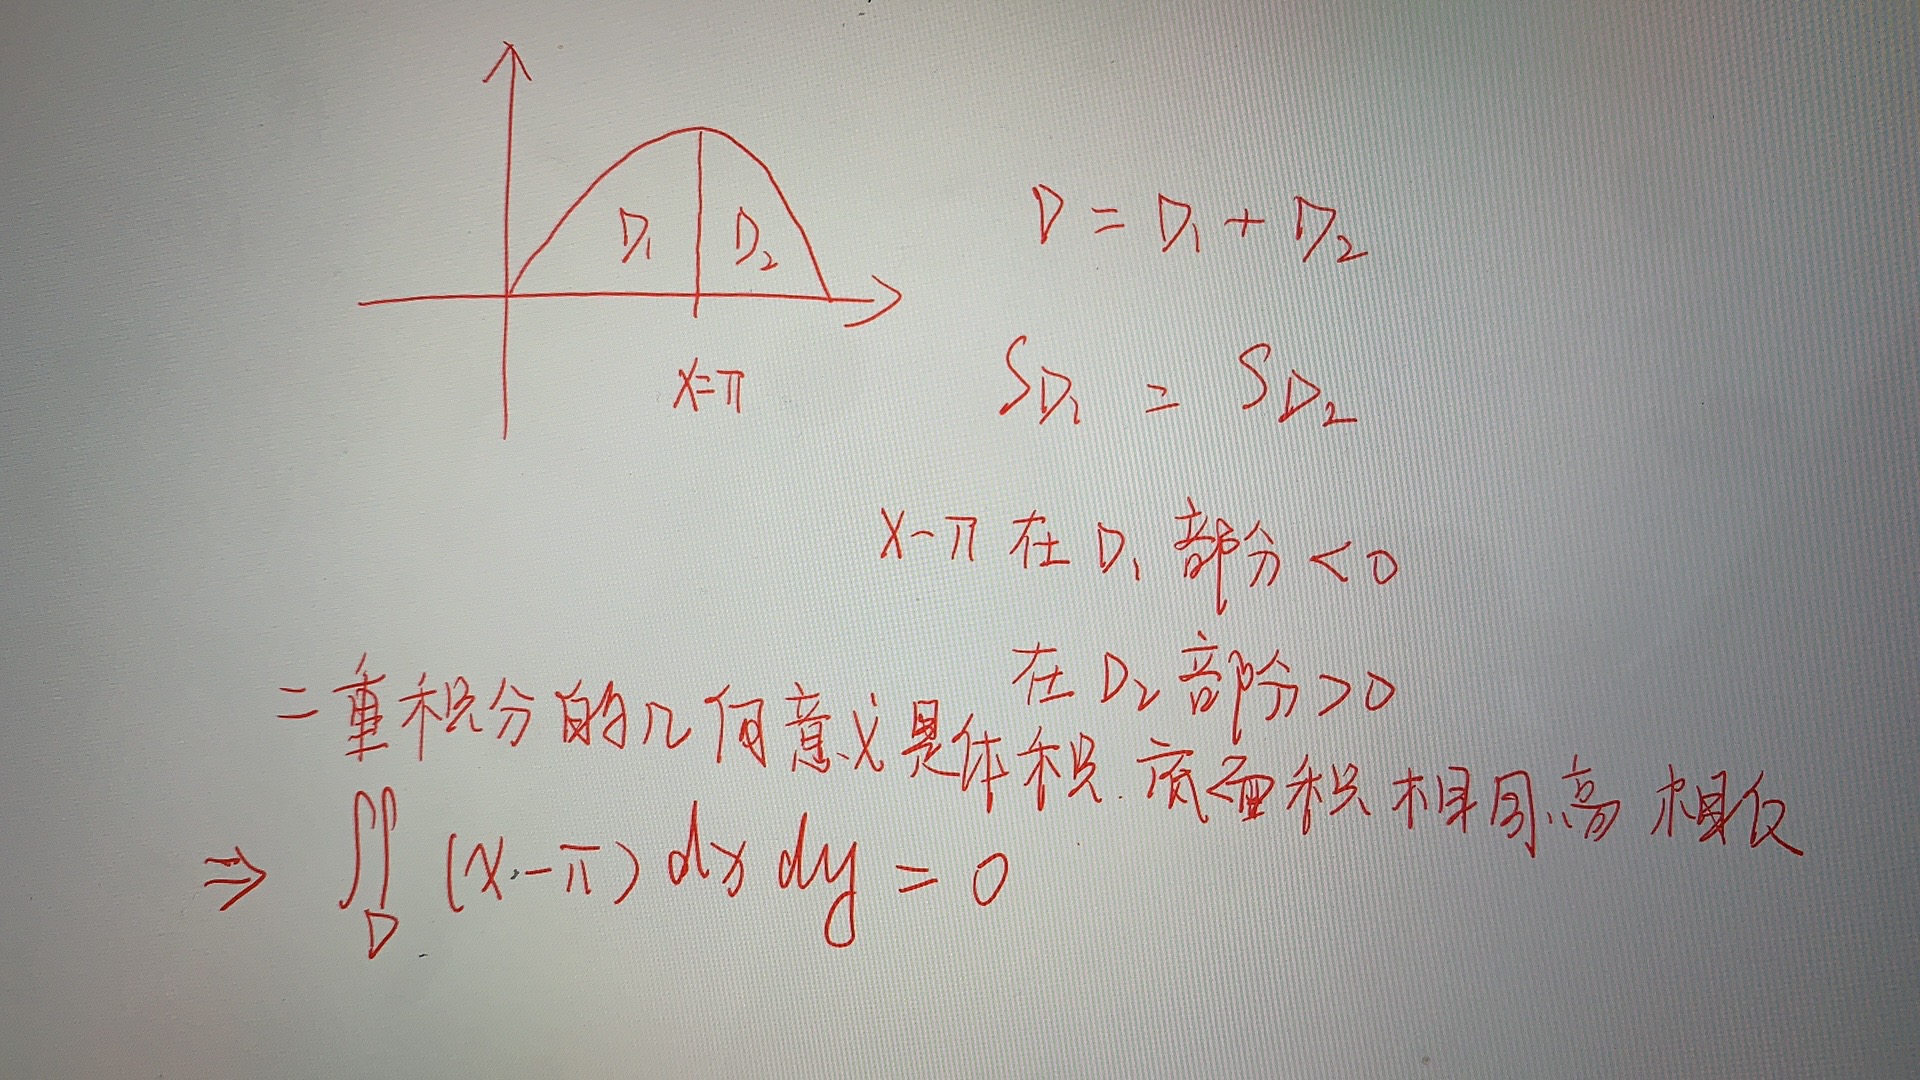 D₁ D₂
x=π
D = D₁ + D₂
S_{D₁} = S_{D₂}
x-π 在 D₁ 部分 <0
在 D₂ 部分 >0
二重积分的几何意义是体积. 底面积相同、高相反
⇒ ∬_D (x-π) dx dy = 0